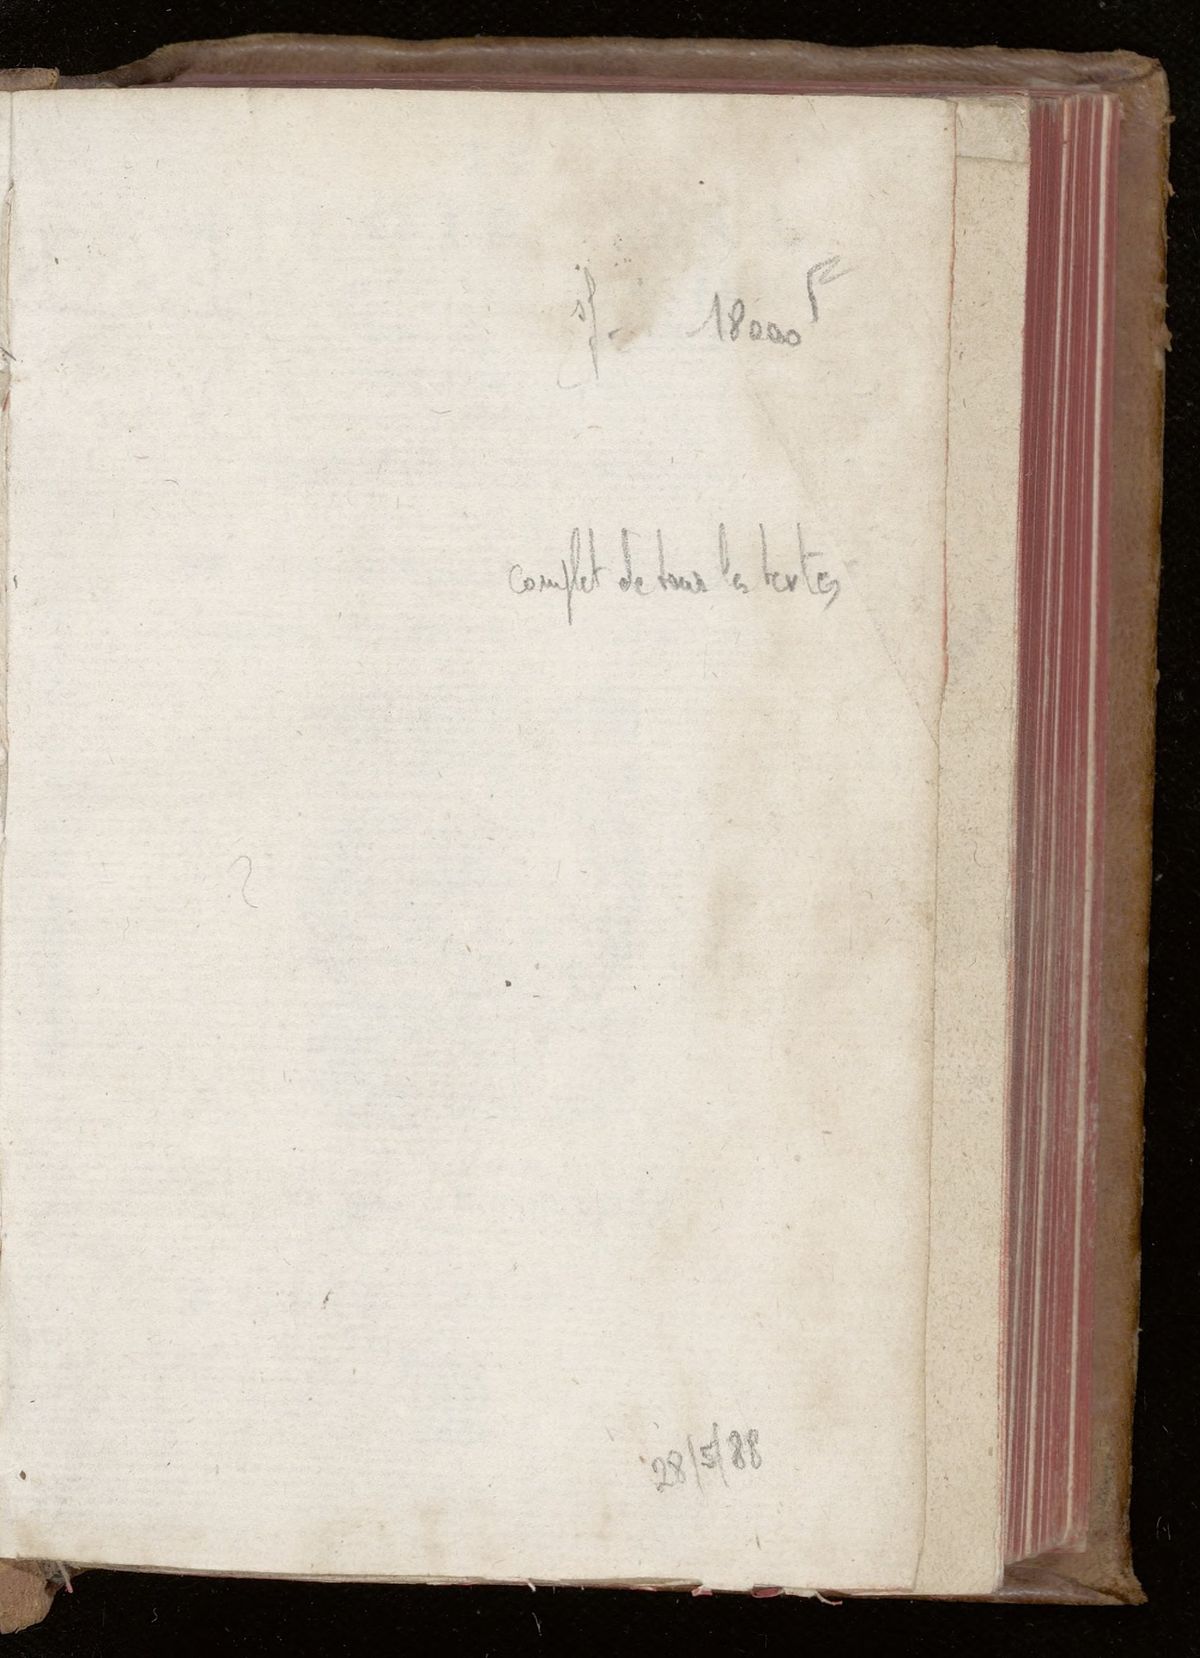 18000 F
complet de tous les textes
28/5/88